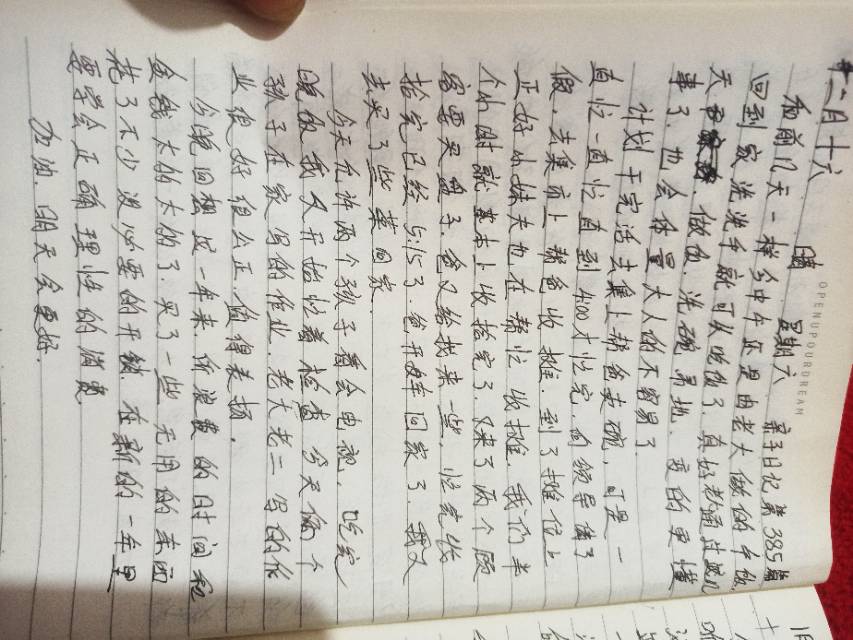 十二月十六 晴 星期六 亲子日记第385篇
和前几天一样今中午还是由老大做的午饭
回到家洗洗手就可以吃饭了真好想通过这几
天做饭、洗碗、拖地、变的更懂
事了.也会体量大人的不容易了
计划干完活去集上帮爸卖碗,可是一
直忙一直忙直到4:00才忙完,向领导请了
假,去集市上帮爸收摊.到了摊位上
正好小妹夫也在帮忙收摊.我们半
个小时就基本上收拾完了.又来了两个顾
客要买盘子.爸又给找来一些.忙完收
拾完已经5:15了.爸开车回家了.我又
去买了些菜回家
今天允许两个孩子看会电视,吃完
晚饭我又开始忙着检查今天俩个
孩子在家写的作业.老大老二写的作
业很好很公正.值得表扬.
今晚回想这一年来.你浪费的时间和
金钱太的太的了.买了一些无用的东西
花了不少没必要的开销.在新的一年里
要学会正确理性的消费
加油.明天会更好.
OPENUPOURDREAM